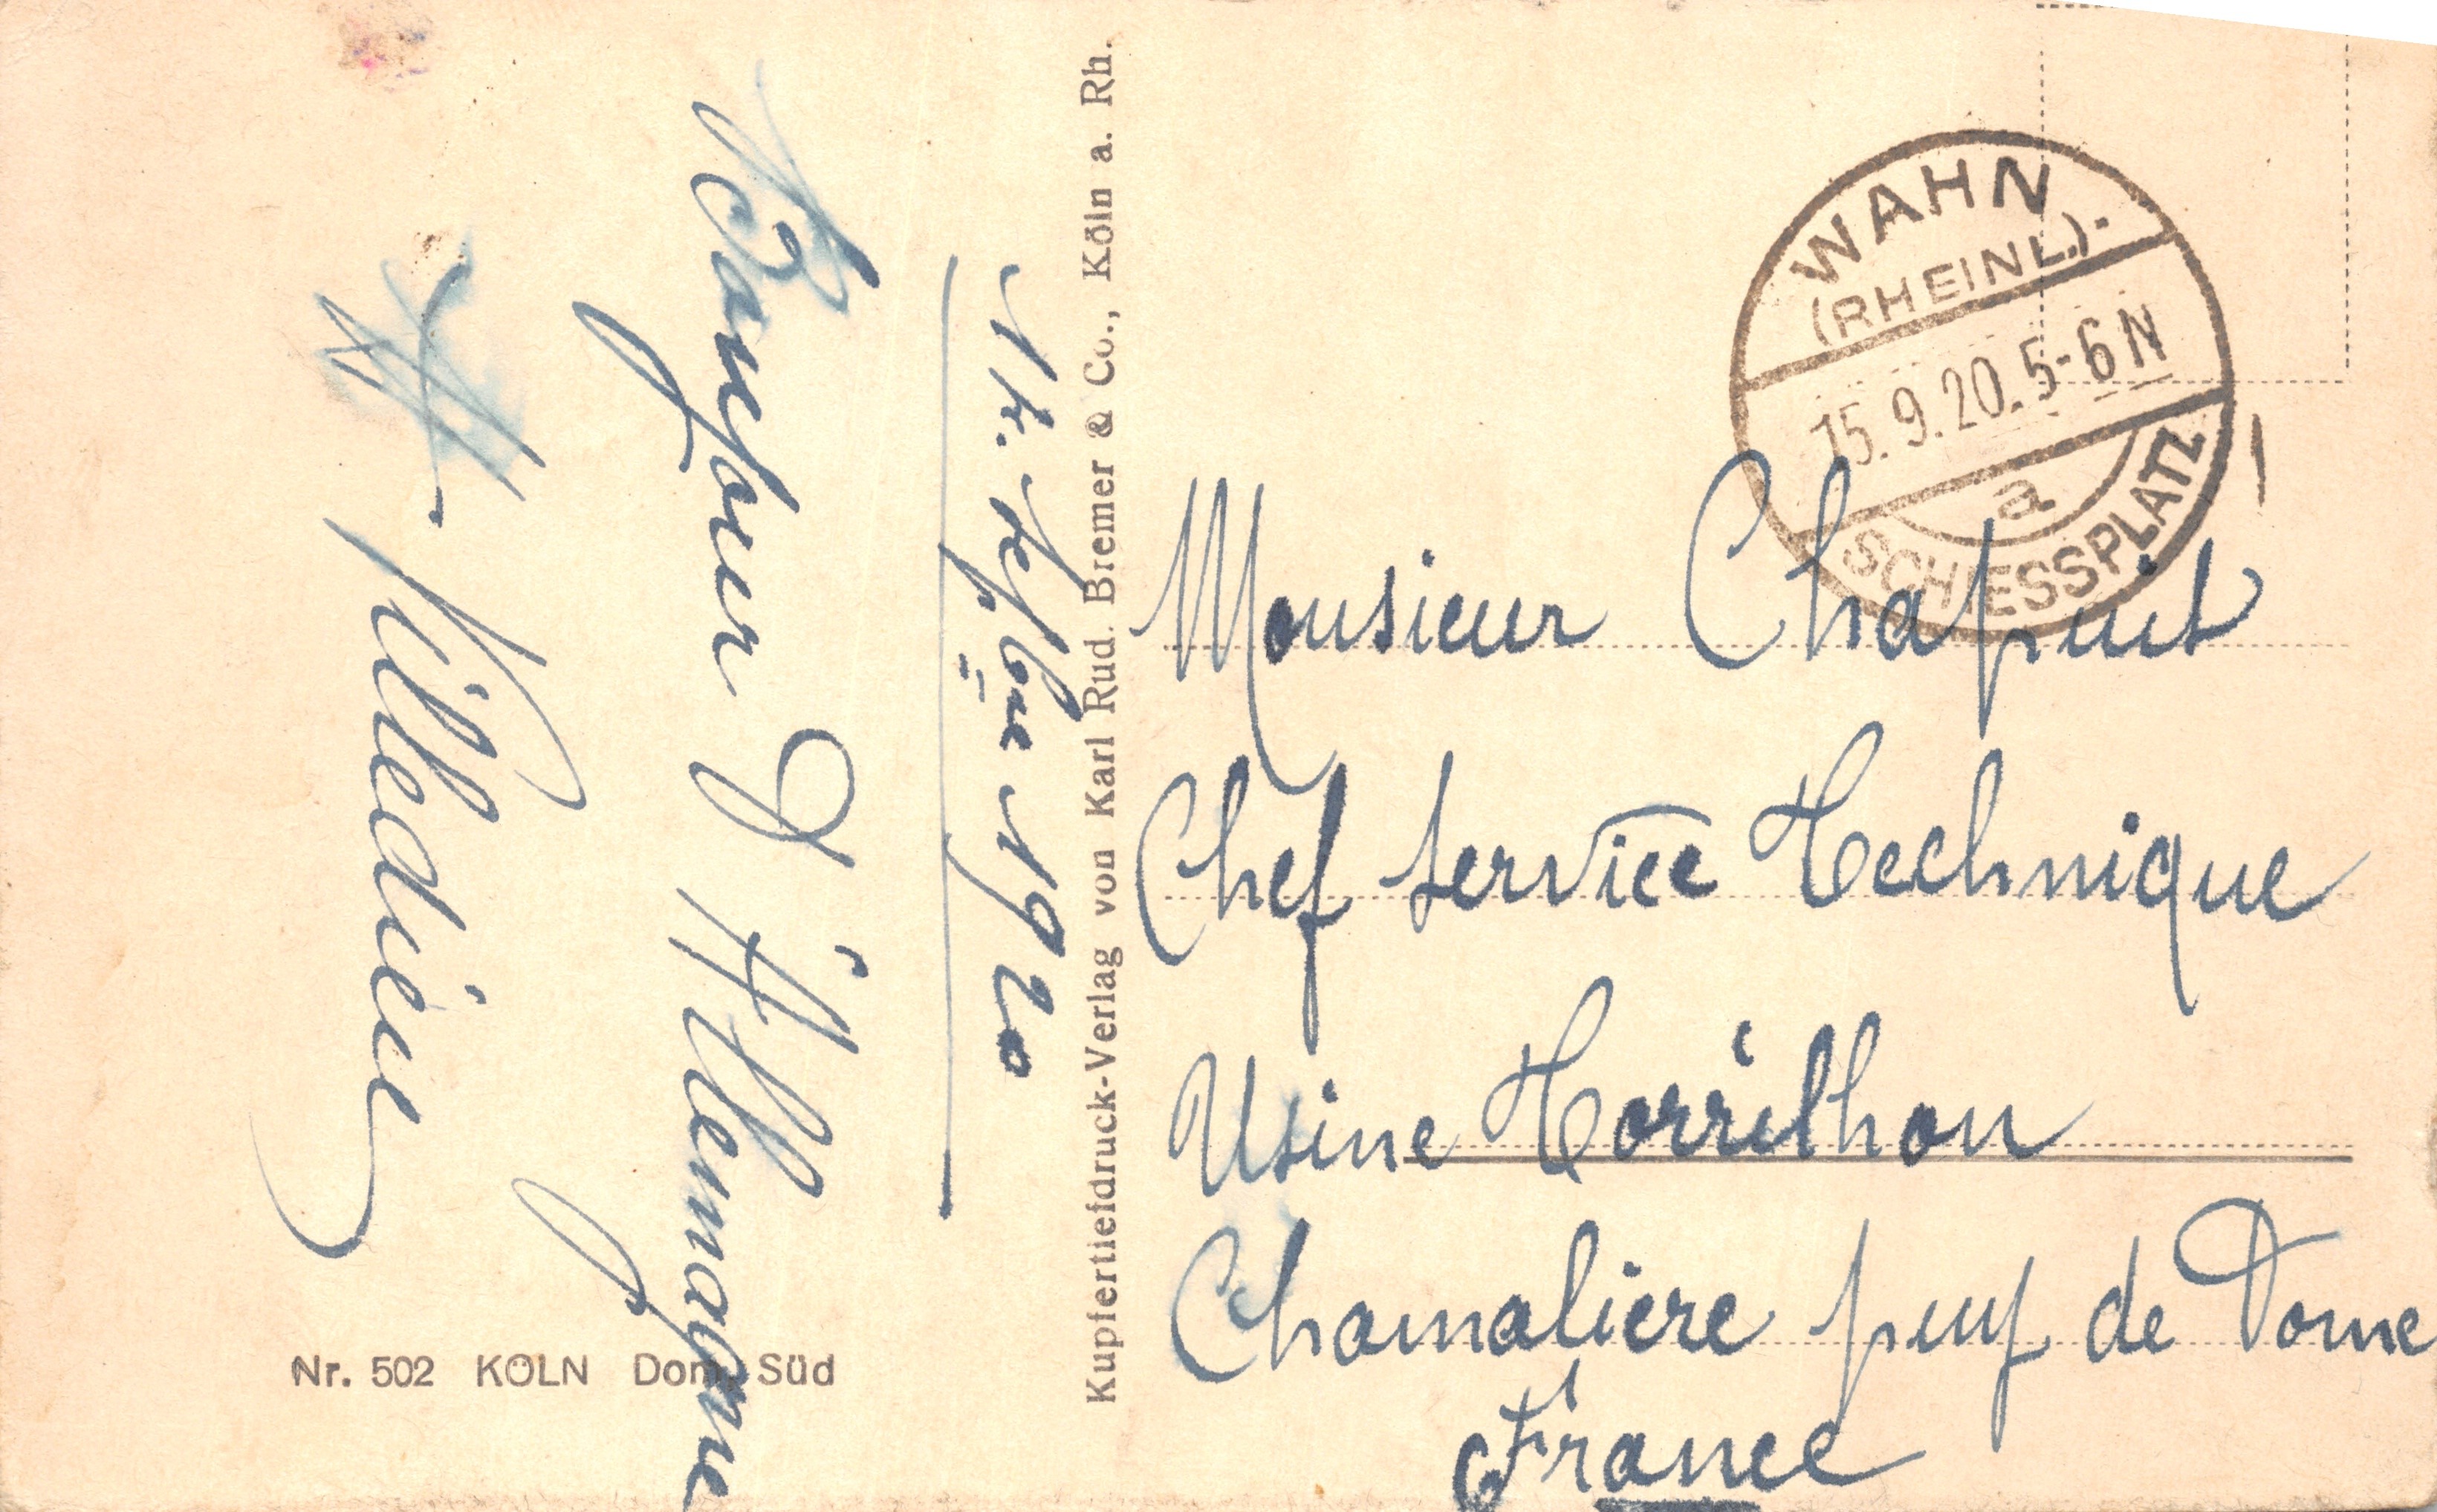 14 Septbre 1920
Bonjour d'Allemagne
A Villedieu
Nr. 502 KÖLN Dom, Süd
Kupfertiefdruck-Verlag von Karl Rud. Bremer & Co., Köln a. Rh.
WAHN
(RHEINL).
15.9.20.5-6N
a
SCHIESSPLATZ
Monsieur Chapuis
Chef Service Technique
Usine Torrilhon
Chamaliere puy de Dome
France